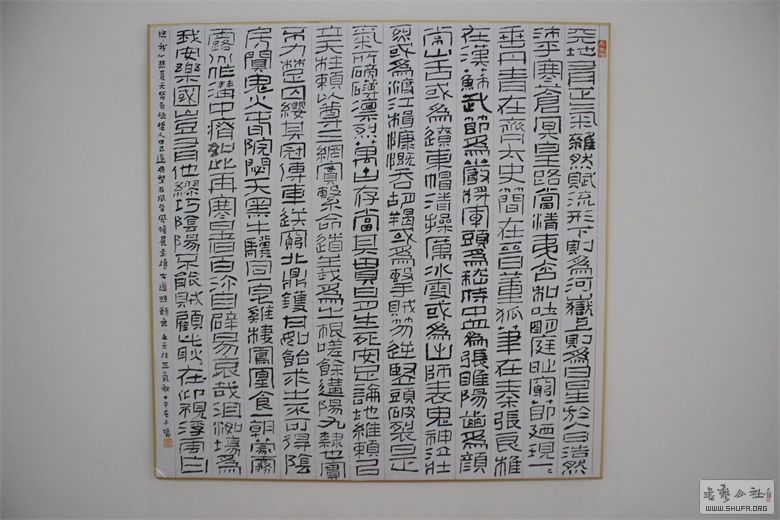 天地有正氣雜然賦流形下則為河嶽上則為日星於人曰浩然
沛乎塞蒼冥皇路當清夷含和吐明庭時窮節廼現一一
垂丹青在齊太史簡在晉董狐筆在秦張良椎
在漢蘇武節為嚴將軍頭為嵇侍中血為張睢陽齒為顏
常山舌或為遼東帽清操厲冰雪或為出師表鬼神泣壯
烈或為渡江楫慷慨吞胡羯或為擊賊笏逆豎頭破裂是
氣所磅礴凜烈萬古存當其貫日月生死安足論地維賴以
立天柱賴以尊三綱實繫命道義為之根嗟餘遘陽九隸也實
不力楚囚纓其冠傳車送窮北鼎鑊甘如飴求之不可得陰
房闃鬼火春院閟天黑牛驥同一皂雞棲鳳凰食一朝蒙霧
露分作溝中瘠如此再寒暑百沴自辟易哀哉沮洳場為
我安樂國豈有他繆巧陰陽不能賊顧此耿耿在仰視浮雲白
悠悠我心悲蒼天曷有極哲人日已遠典型在夙昔風檐展書讀古道照顏色文天祥正氣歌
書藝公社
WWW.SHUFA.ORG